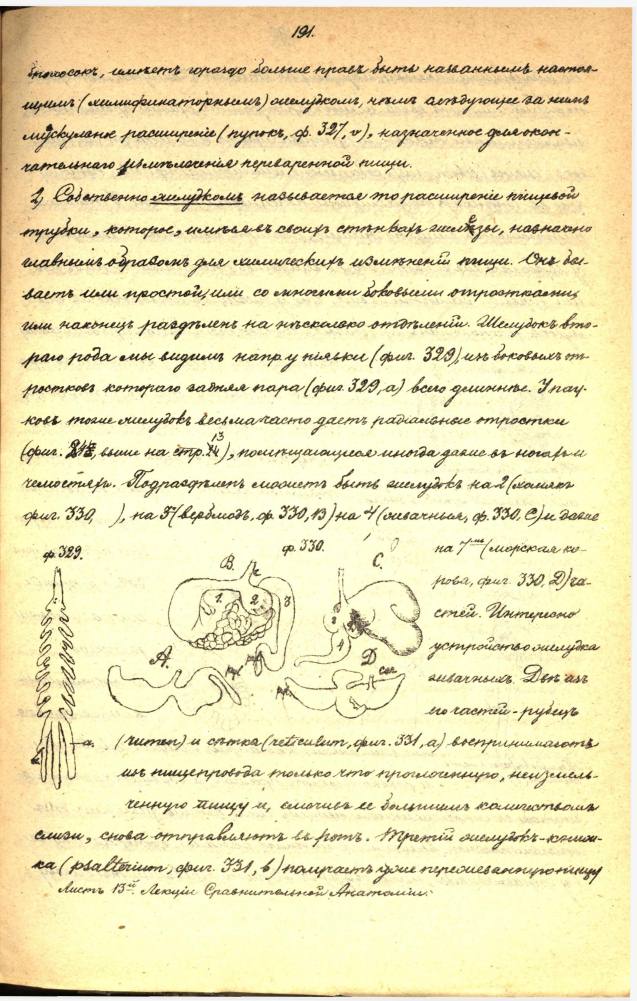 191.
имѣетъ гораздо больше правъ быть названнымъ настоя-
щимъ (химификаторнымъ) желудкомъ, чѣмъ слѣдующее за нимъ
мускульное расширеніе (пупокъ, ф. 327, v), назначенное для окон-
чательнаго измѣльченія переваренной пищи.
2) Собственно желудкомъ называется то расширеніе пищевой
трубки, которое, имѣя въ своихъ стѣнкахъ желѣзы, назначено
главнымъ образомъ для химическихъ измѣненій пищи. Онъ бы-
ваетъ или простой, или со многими боковыми отростками,
или наконецъ раздѣленъ на нѣсколько отдѣленій. Желудокъ вто-
раго рода мы видимъ напр. у піявки (фиг. 329), изъ боковыхъ от-
ростковъ котораго задняя пара (фиг. 329, a) всего длиннѣе. У пау-
ковъ тоже желудокъ весьма часто даетъ радіальные отростки
(фиг. выше на стр. 13), помѣщающіеся иногда даже въ ногахъ и
челюстяхъ. Подраздѣленъ можетъ быть желудокъ на 2 (хомякъ
фиг. 330, ), на 3 (верблюдъ, ф. 330, B) на 4 (жвачныя, ф. 330, C) и даже
ф. 329. B. ф. 330. C. на 7 (морская ко-
рова, фиг. 330, D) ча-
1. 2. 3 стей. Интересно
A. D устройство желудка
жвачныхъ. Двѣ изъ
его частей - рубецъ
a. (rumen) и сѣтка (reticulum, фиг. 331, a) воспринимаютъ
изъ пищепровода только что проглоченную, неизмель-
ченную пищу и, смочивъ ее большимъ количествомъ
слизи, снова отправляютъ въ ротъ. Третій желудокъ - книж-
ка (psalterium, фиг. 331, b) получаетъ уже пережеванную пищу
Листъ 13й. Лекціи Сравнительной Анатоміи.